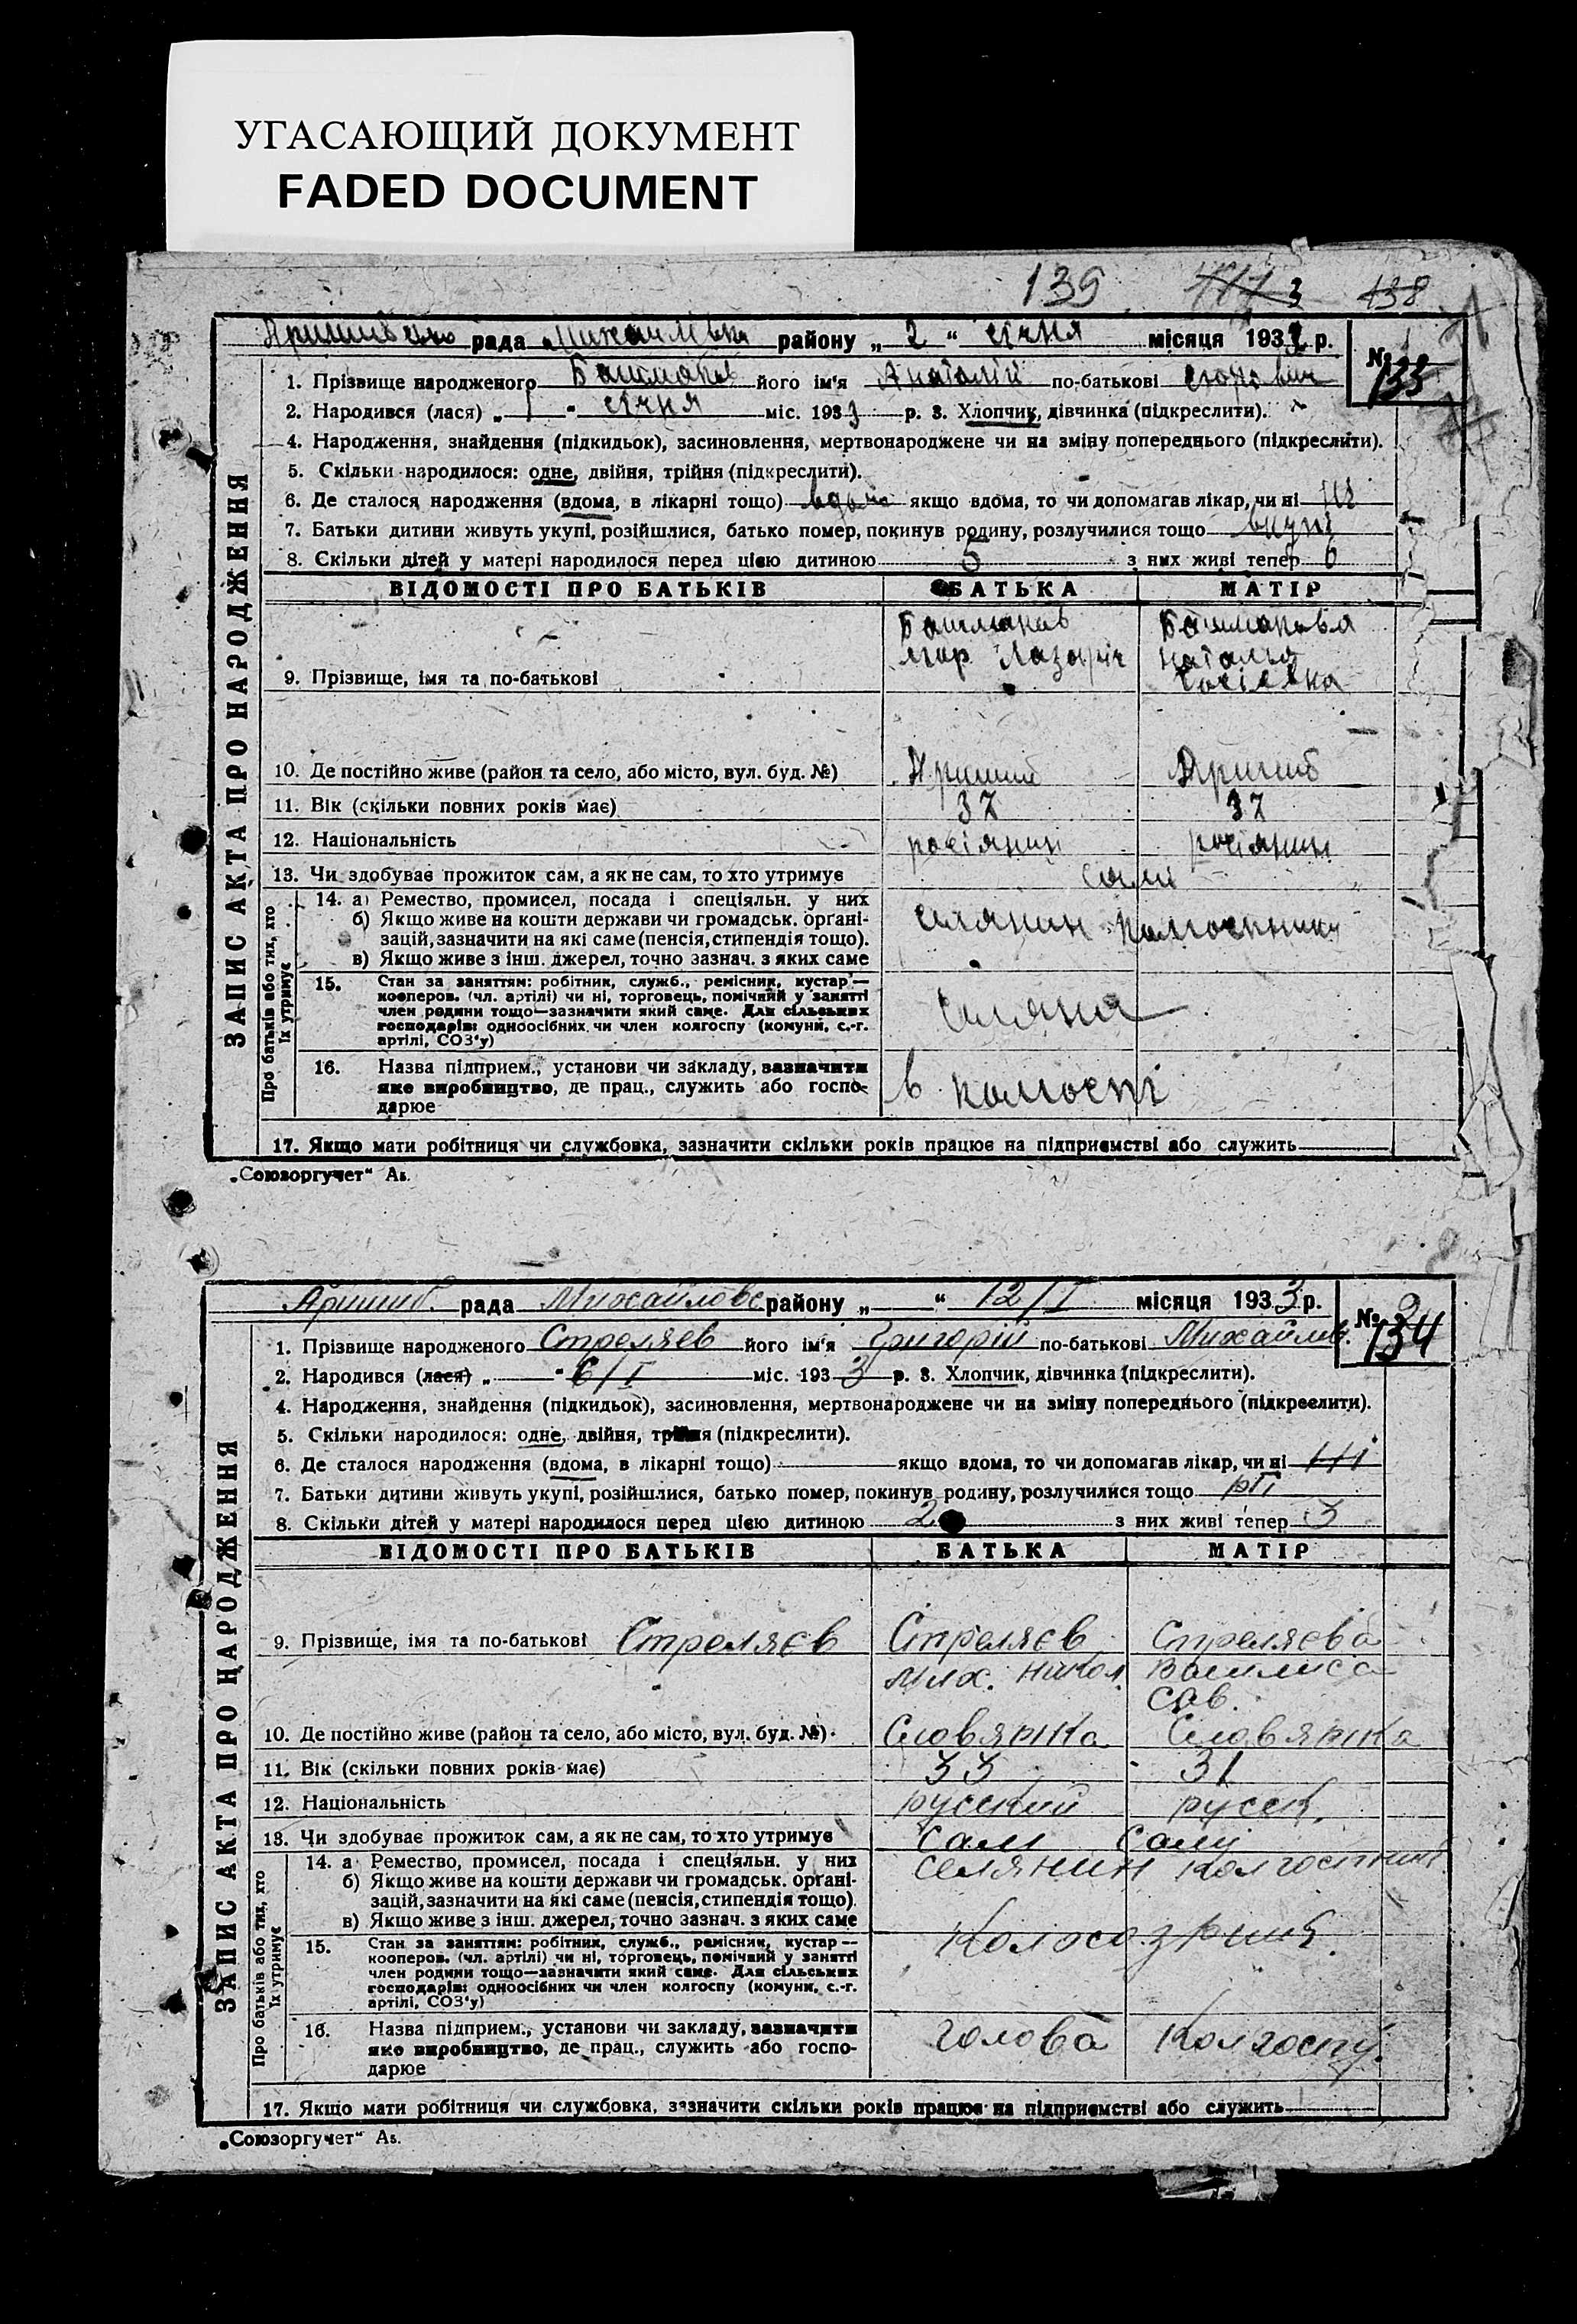 УГАСАЮЩИЙ ДОКУМЕНТ
FADED DOCUMENT
139 138
рада района „ 2 “ січня місяця 193 р.
№ 133
1. Прізвище народженого Башмаков його ім'я Анатолій по-батькові Єгорович
2. Народився (лася) „ 1 “ січня міс. 1933 р. 3. Хлопчик, дівчинка (підкреслити).
4. Народження, знайдення (підкидьок), засиновлення, мертвонароджене чи на зміну попереднього (підкреслити).
5. Скільки народилося: одне, двійня, трійня (підкреслити).
6. Де сталося народження (вдома, в лікарні тощо) вдома якщо вдома, то чи допомагав лікар, чи ні ні
7. Батьки дитини живуть укупі, розійшлися, батько помер, покинув родину, розлучилися тощо вкупі
8. Скільки дітей у матері народилося перед цією дитиною 5 з них живі тепер 6
ЗАПИС АКТА ПРО НАРОДЖЕННЯ
ВІДОМОСТІ ПРО БАТЬКІВ БАТЬКА МАТІР
Башмаков Башмакова
Лазаріч Наталья
9. Прізвище, імя та по-батькові
10. Де постійно живе (район та село, або місто, вул. буд. №)
11. Вік (скільки повних років має) 37 37
12. Національність росіянин росіянин
13. Чи здобуває прожиток сам, а як не сам, то хто утримує сами
Про батьків або тих, хто їх утримує
14. а) Ремество, промисел, посада і спеціяльн. у них
б) Якщо живе на кошти держави чи громадськ. органі-
зацій, зазначити на які саме (пенсія, стипендія тощо).
в) Якщо живе з інш. джерел, точно зазнач. з яких саме
селянин колгоспники
15. Стан за заняттям: робітник, служб., ремісник, кустар —
кооперов. (чл. артілі) чи ні, торговець, помічний у занятті
член родини тощо—зазначити який саме. Для сільських
господарів: одноосібних чи член колгоспу (комуни, с.-г.
артілі, СОЗ'у)
селяне
16. Назва підприєм., установи чи закладу, зазначити
яке виробництво, де прац., служить або госпо-
дарює
в колгоспі
17. Якщо мати робітниця чи службовка, зазначити скільки років працює на підприємстві або служить
„Союзоргучет“ Аъ.
Яришив. рада Михайловс району „ “ 12/I місяця 1933 р.
№ 134
1. Прізвище народженого Стреляев його ім'я Григорій по-батькові Михайлов.
2. Народився (лася) „ “ 6/I міс. 1933 р. 3. Хлопчик, дівчинка (підкреслити).
4. Народження, знайдення (підкидьок), засиновлення, мертвонароджене чи на зміну попереднього (підкреслити).
5. Скільки народилося: одне, двійня, трійня (підкреслити).
6. Де сталося народження (вдома, в лікарні тощо) якщо вдома, то чи допомагав лікар, чи ні ні
7. Батьки дитини живуть укупі, розійшлися, батько помер, покинув родину, розлучилися тощо
8. Скільки дітей у матері народилося перед цією дитиною 2 з них живі тепер 3
ЗАПИС АКТА ПРО НАРОДЖЕННЯ
ВІДОМОСТІ ПРО БАТЬКІВ БАТЬКА МАТІР
9. Прізвище, імя та по-батькові Стреляєв Стреляєв Стреляєва
Мих. Никол. Василиса
Сав.
10. Де постійно живе (район та село, або місто, вул. буд. №) Словянка Словянка
11. Вік (скільки повних років має) 33 31
12. Національність русский русск.
13. Чи здобуває прожиток сам, а як не сам, то хто утримує Сам Самі
Про батьків або тих, хто їх утримує
14. а Ремество, промисел, посада і спеціяльн. у них
б) Якщо живе на кошти держави чи громадськ. органі-
зацій, зазначити на які саме (пенсія, стипендія тощо).
в) Якщо живе з інш. джерел, точно зазнач. з яких саме
селянин колгоспник
15. Стан за заняттям: робітник, служб., ремісник, кустар —
кооперов. (чл. артілі) чи ні, торговець, помічний у занятті
член родини тощо—зазначити який саме. Для сільських
господарів: одноосібних чи член колгоспу (комуни, с.-г.
артілі, СОЗ'у)
16. Назва підприєм., установи чи закладу, зазначити
яке виробництво, де прац., служить або госпо-
дарює
голова колгоспу.
17. Якщо мати робітниця чи службовка, зазначити скільки років працює на підприємстві або служить
„Союзоргучет“ Аъ.